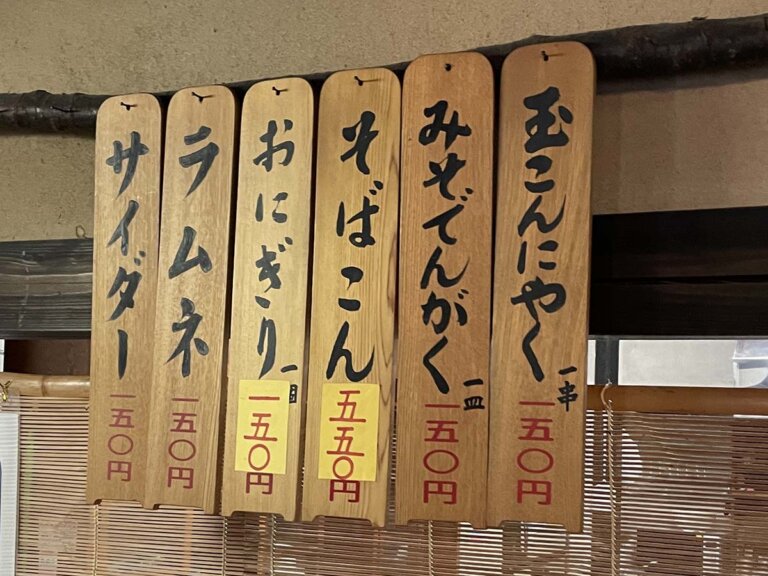 玉こんにやく
一串
一五〇円
みそでんがく
一皿
一五〇円
そばこん
五五〇円
おにぎり
一五〇円
ラムネ
一五〇円
サイダー
一五〇円